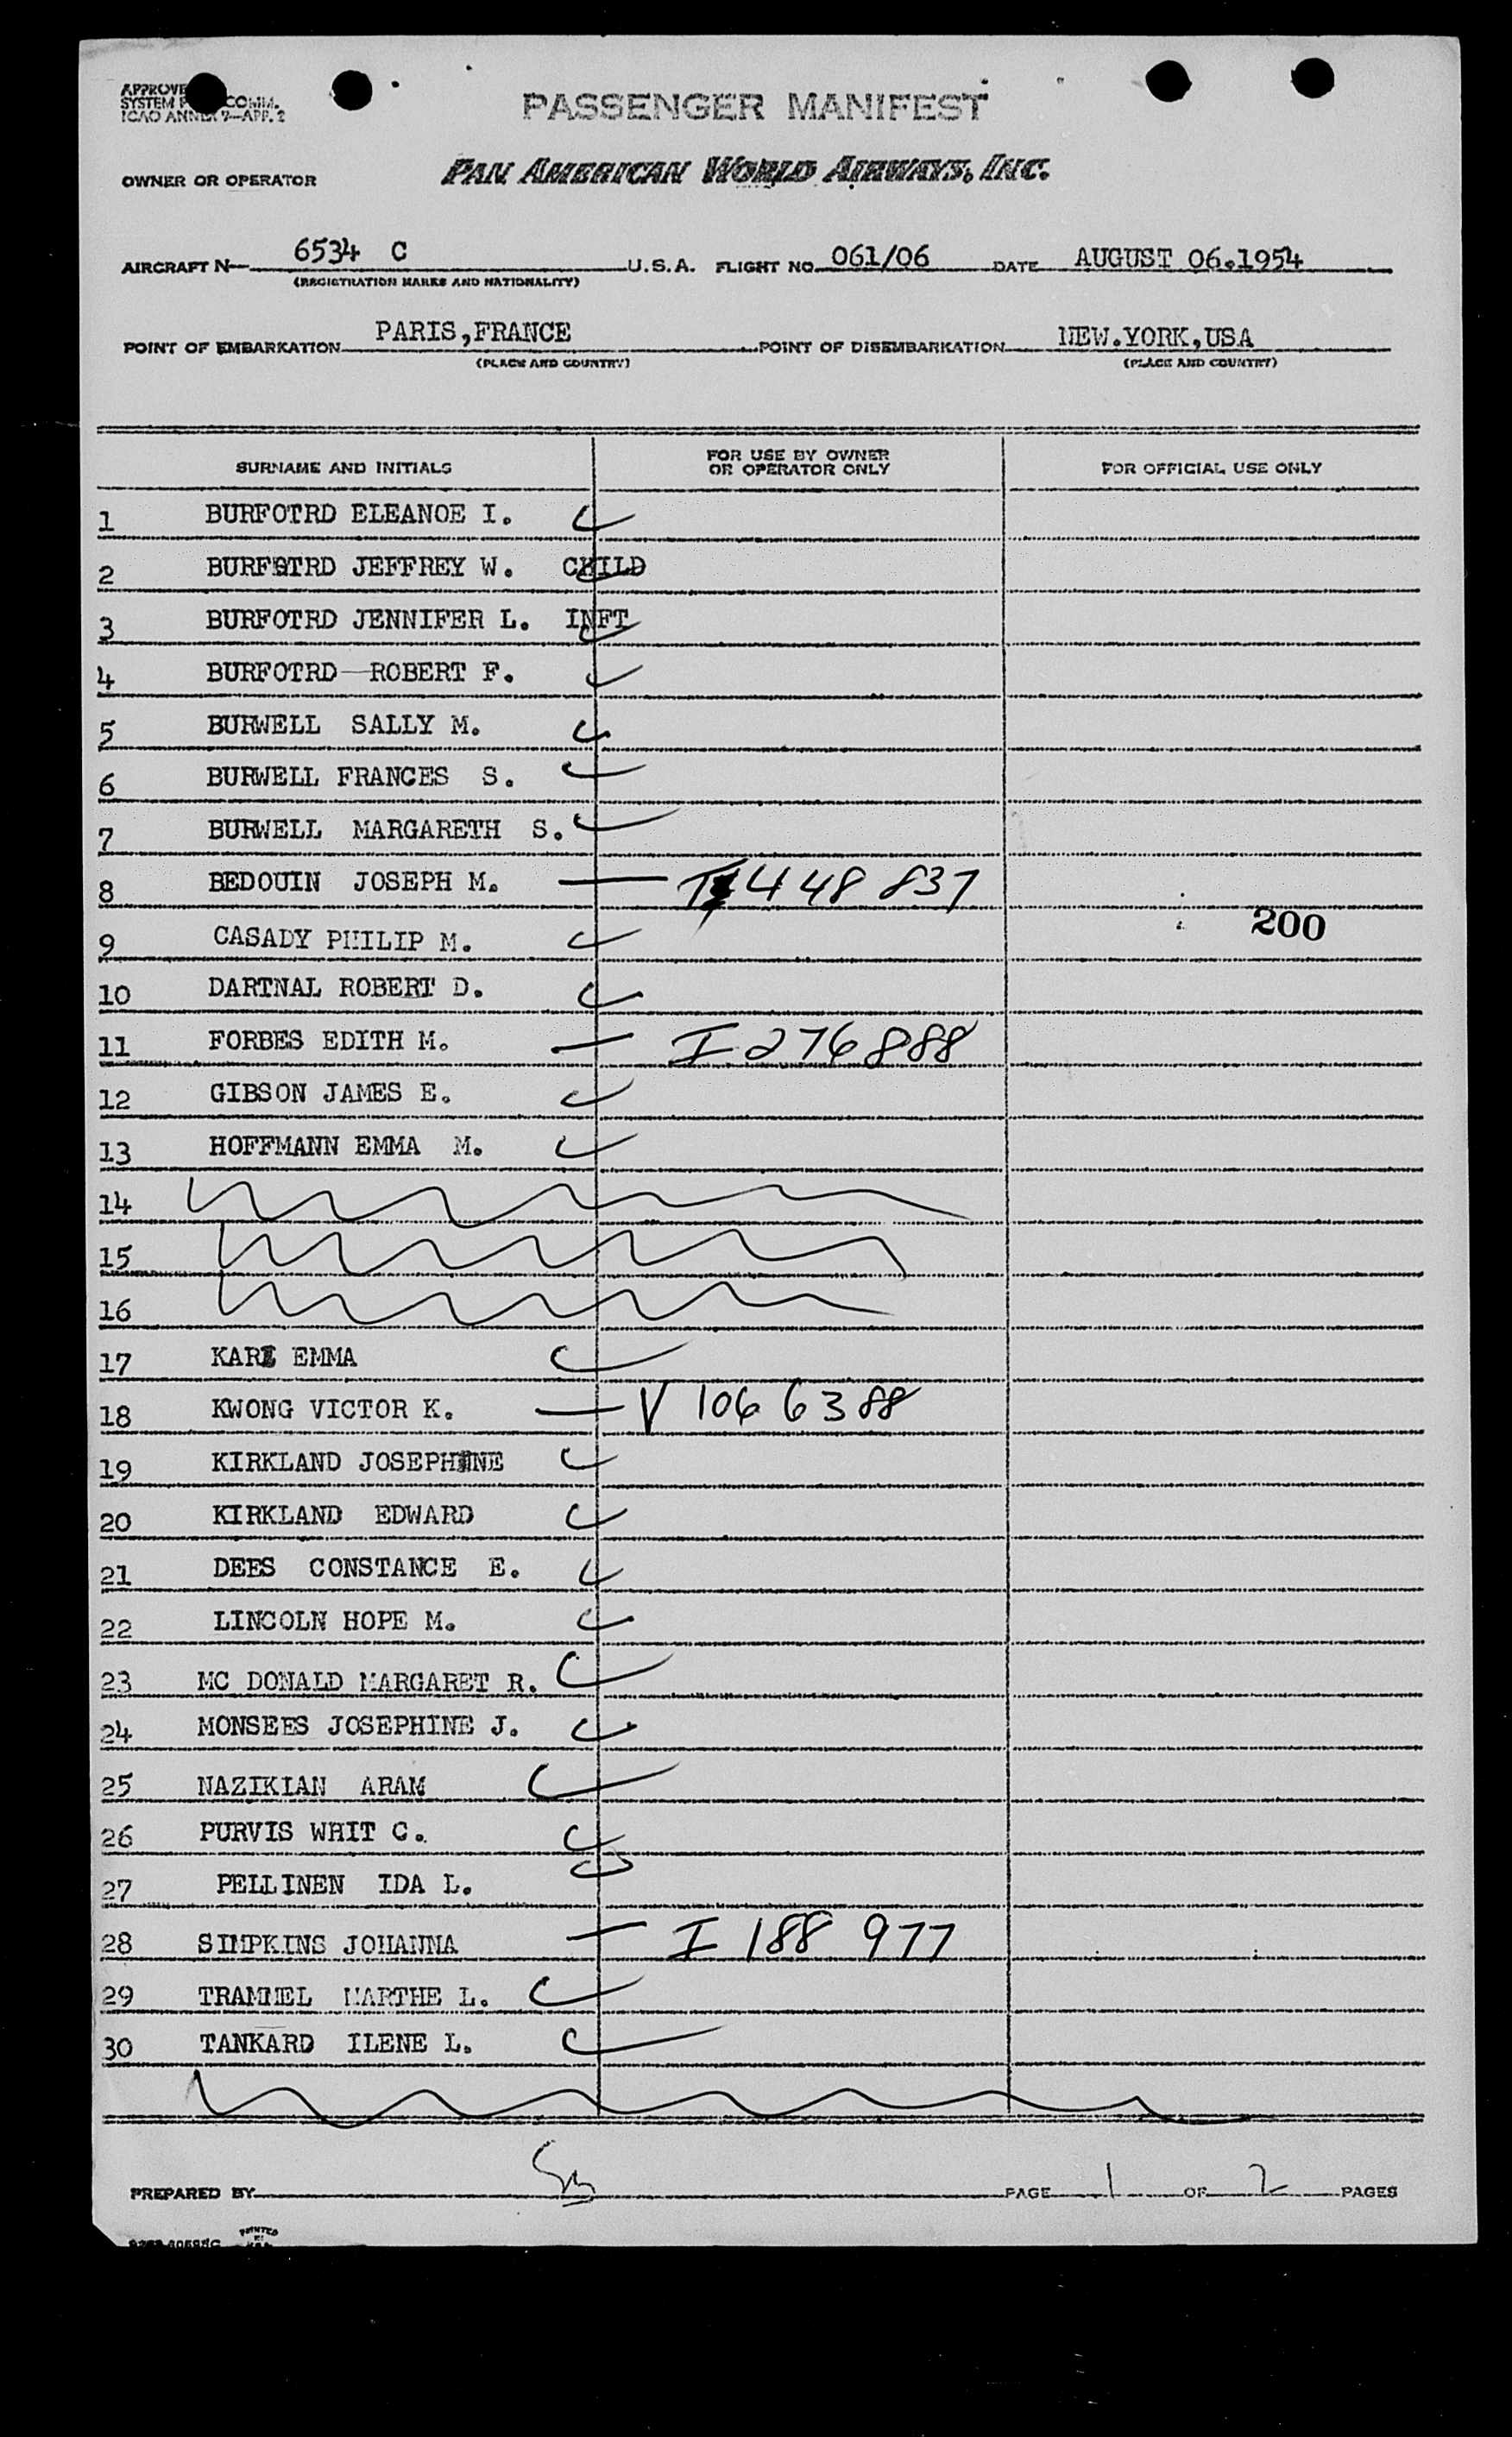 APPROVE
SYSTEM COMM.
ICAO ANNEX 9—APP. 2
PASSENGER MANIFEST
OWNER OR OPERATOR PAN AMERICAN WORLD AIRWAYS, INC.
AIRCRAFT N— 6534 C U.S.A. FLIGHT NO. 061/06 DATE AUGUST 06.1954
(REGISTRATION MARKS AND NATIONALITY)
POINT OF EMBARKATION PARIS,FRANCE POINT OF DISEMBARKATION NEW.YORK,USA
(PLACE AND COUNTRY) (PLACE AND COUNTRY)
SURNAME AND INITIALS FOR USE BY OWNER OR OPERATOR ONLY FOR OFFICIAL USE ONLY
1 BURFOTRD ELEANOE I.
2 BURFOTRD JEFFREY W. CHILD
3 BURFOTRD JENNIFER L. INFT
4 BURFOTRD—ROBERT F.
5 BURWELL SALLY M.
6 BURWELL FRANCES S.
7 BURWELL MARGARETH S.
8 BEDOUIN JOSEPH M. — 448 837
200
9 CASADY PHILIP M.
10 DARTNAL ROBERT D.
11 FORBES EDITH M. — I 276888
12 GIBSON JAMES E.
13 HOFFMANN EMMA M.
14
15
16
17 EMMA
18 KWONG VICTOR K. — V 1066388
19 KIRKLAND JOSEPHINE
20 KIRKLAND EDWARD
21 DEES CONSTANCE E.
22 LINCOLN HOPE M.
23 MC DONALD MARGARET R.
24 MONSEES JOSEPHINE J.
25 NAZIKIAN ARAM
26 PURVIS WHIT C.
27 PELLINEN IDA L.
28 SIMPKINS JOHANNA — I 188 977
29 TRAMMEL MARTHE L.
30 TANKARD ILENE L.
PREPARED BY PAGE 1 OF 2 PAGES
PRINTED IN USA